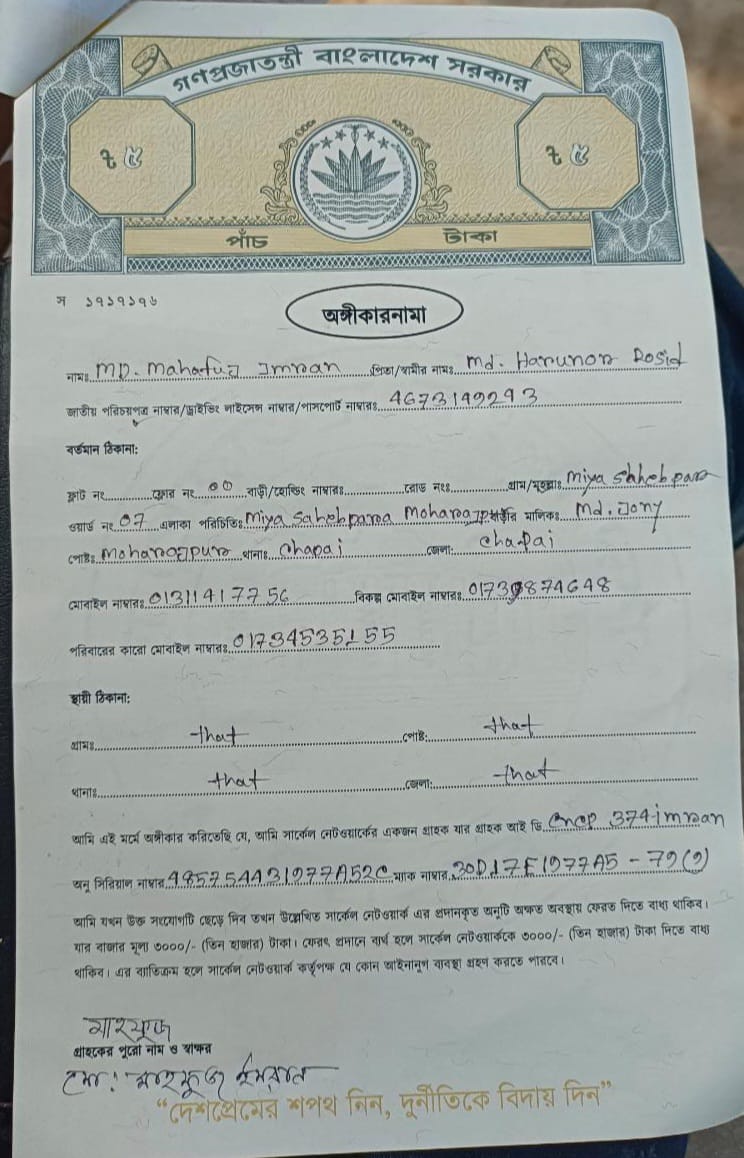 গণপ্রজাতন্ত্রী বাংলাদেশ সরকার
৳ ৫ ৳ ৫
পাঁচ টাকা
স ১৭১৭১৭৬
অঙ্গীকারনামা
নামঃ MD. Mahafuz Imran পিতা/স্বামীর নামঃ Md. Harunor Rosid
জাতীয় পরিচয়পত্র নাম্বার/ড্রাইভিং লাইসেন্স নাম্বার/পাসপোর্ট নাম্বারঃ 4673149293
বর্তমান ঠিকানা:
ফ্লাট নং ফ্লোর নং 00 বাড়ী/হোল্ডিং নাম্বারঃ রোড নংঃ গ্রাম/মহল্লাঃ Miya Sahebpara
ওয়ার্ড নং 07 এলাকা পরিচিতিঃ Miya Sahebpara Moharajpur বাড়ীর মালিকঃ Md. Jony
পোষ্টঃ Moharajpur থানাঃ Chapai জেলা: Chapai
মোবাইল নাম্বারঃ 01311417756 বিকল্প মোবাইল নাম্বারঃ 01739874648
পরিবারের কারো মোবাইল নাম্বারঃ 01734535155
স্থায়ী ঠিকানা:
গ্রামঃ that পোষ্ট: that
থানাঃ that জেলা: that
আমি এই মর্মে অঙ্গীকার করিতেছি যে, আমি সার্কেল নেটওয়ার্কের একজন গ্রাহক যার গ্রাহক আই ডি 374-imran
অনু সিরিয়াল নাম্বার 485754431977A52C ম্যাক নাম্বার 30D17E1977A5 - 79(9)
আমি যখন উক্ত সংযোগটি ছেড়ে দিব তখন উল্লেখিত সার্কেল নেটওয়ার্ক এর প্রদানকৃত অনুটি অক্ষত অবস্থায় ফেরত দিতে বাধ্য থাকিব।
যার বাজার মূল্য ৩০০০/- (তিন হাজার) টাকা। ফেরৎ প্রদানে ব্যর্থ হলে সার্কেল নেটওয়ার্ককে ৩০০০/- (তিন হাজার) টাকা দিতে বাধ্য
থাকিব। এর ব্যতিক্রম হলে সার্কেল নেটওয়ার্ক কর্তৃপক্ষ যে কোন আইনানুগ ব্যবস্থা গ্রহণ করতে পারবে।
মাহফুজ
গ্রাহকের পুরো নাম ও স্বাক্ষর
মো: মাহফুজ ইমরান
“দেশপ্রেমের শপথ নিন, দুর্নীতিকে বিদায় দিন”